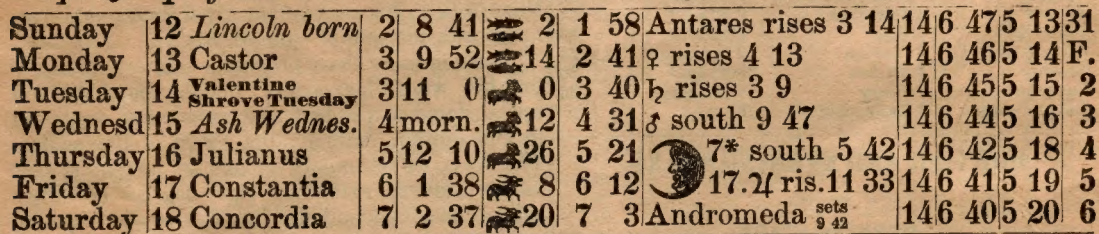 Sunday 12 Lincoln born 2 8 41 2 1 58 Antares rises 3 14 14 6 47 5 13 31
Monday 13 Castor 3 9 52 14 2 41 ♀ rises 4 13 14 6 46 5 14 F.
Tuesday 14 Valentine Shrove Tuesday 3 11 0 0 3 40 ♄ rises 3 9 14 6 45 5 15 2
Wednesd 15 Ash Wednes. 4 morn. 12 4 31 ♂ south 9 47 14 6 44 5 16 3
Thursday 16 Julianus 5 12 10 26 5 21 7* south 5 42 14 6 42 5 18 4
Friday 17 Constantia 6 1 38 8 6 12 17. ♃ ris. 11 33 14 6 41 5 19 5
Saturday 18 Concordia 7 2 37 20 7 3 Andromeda sets 9 42 14 6 40 5 20 6